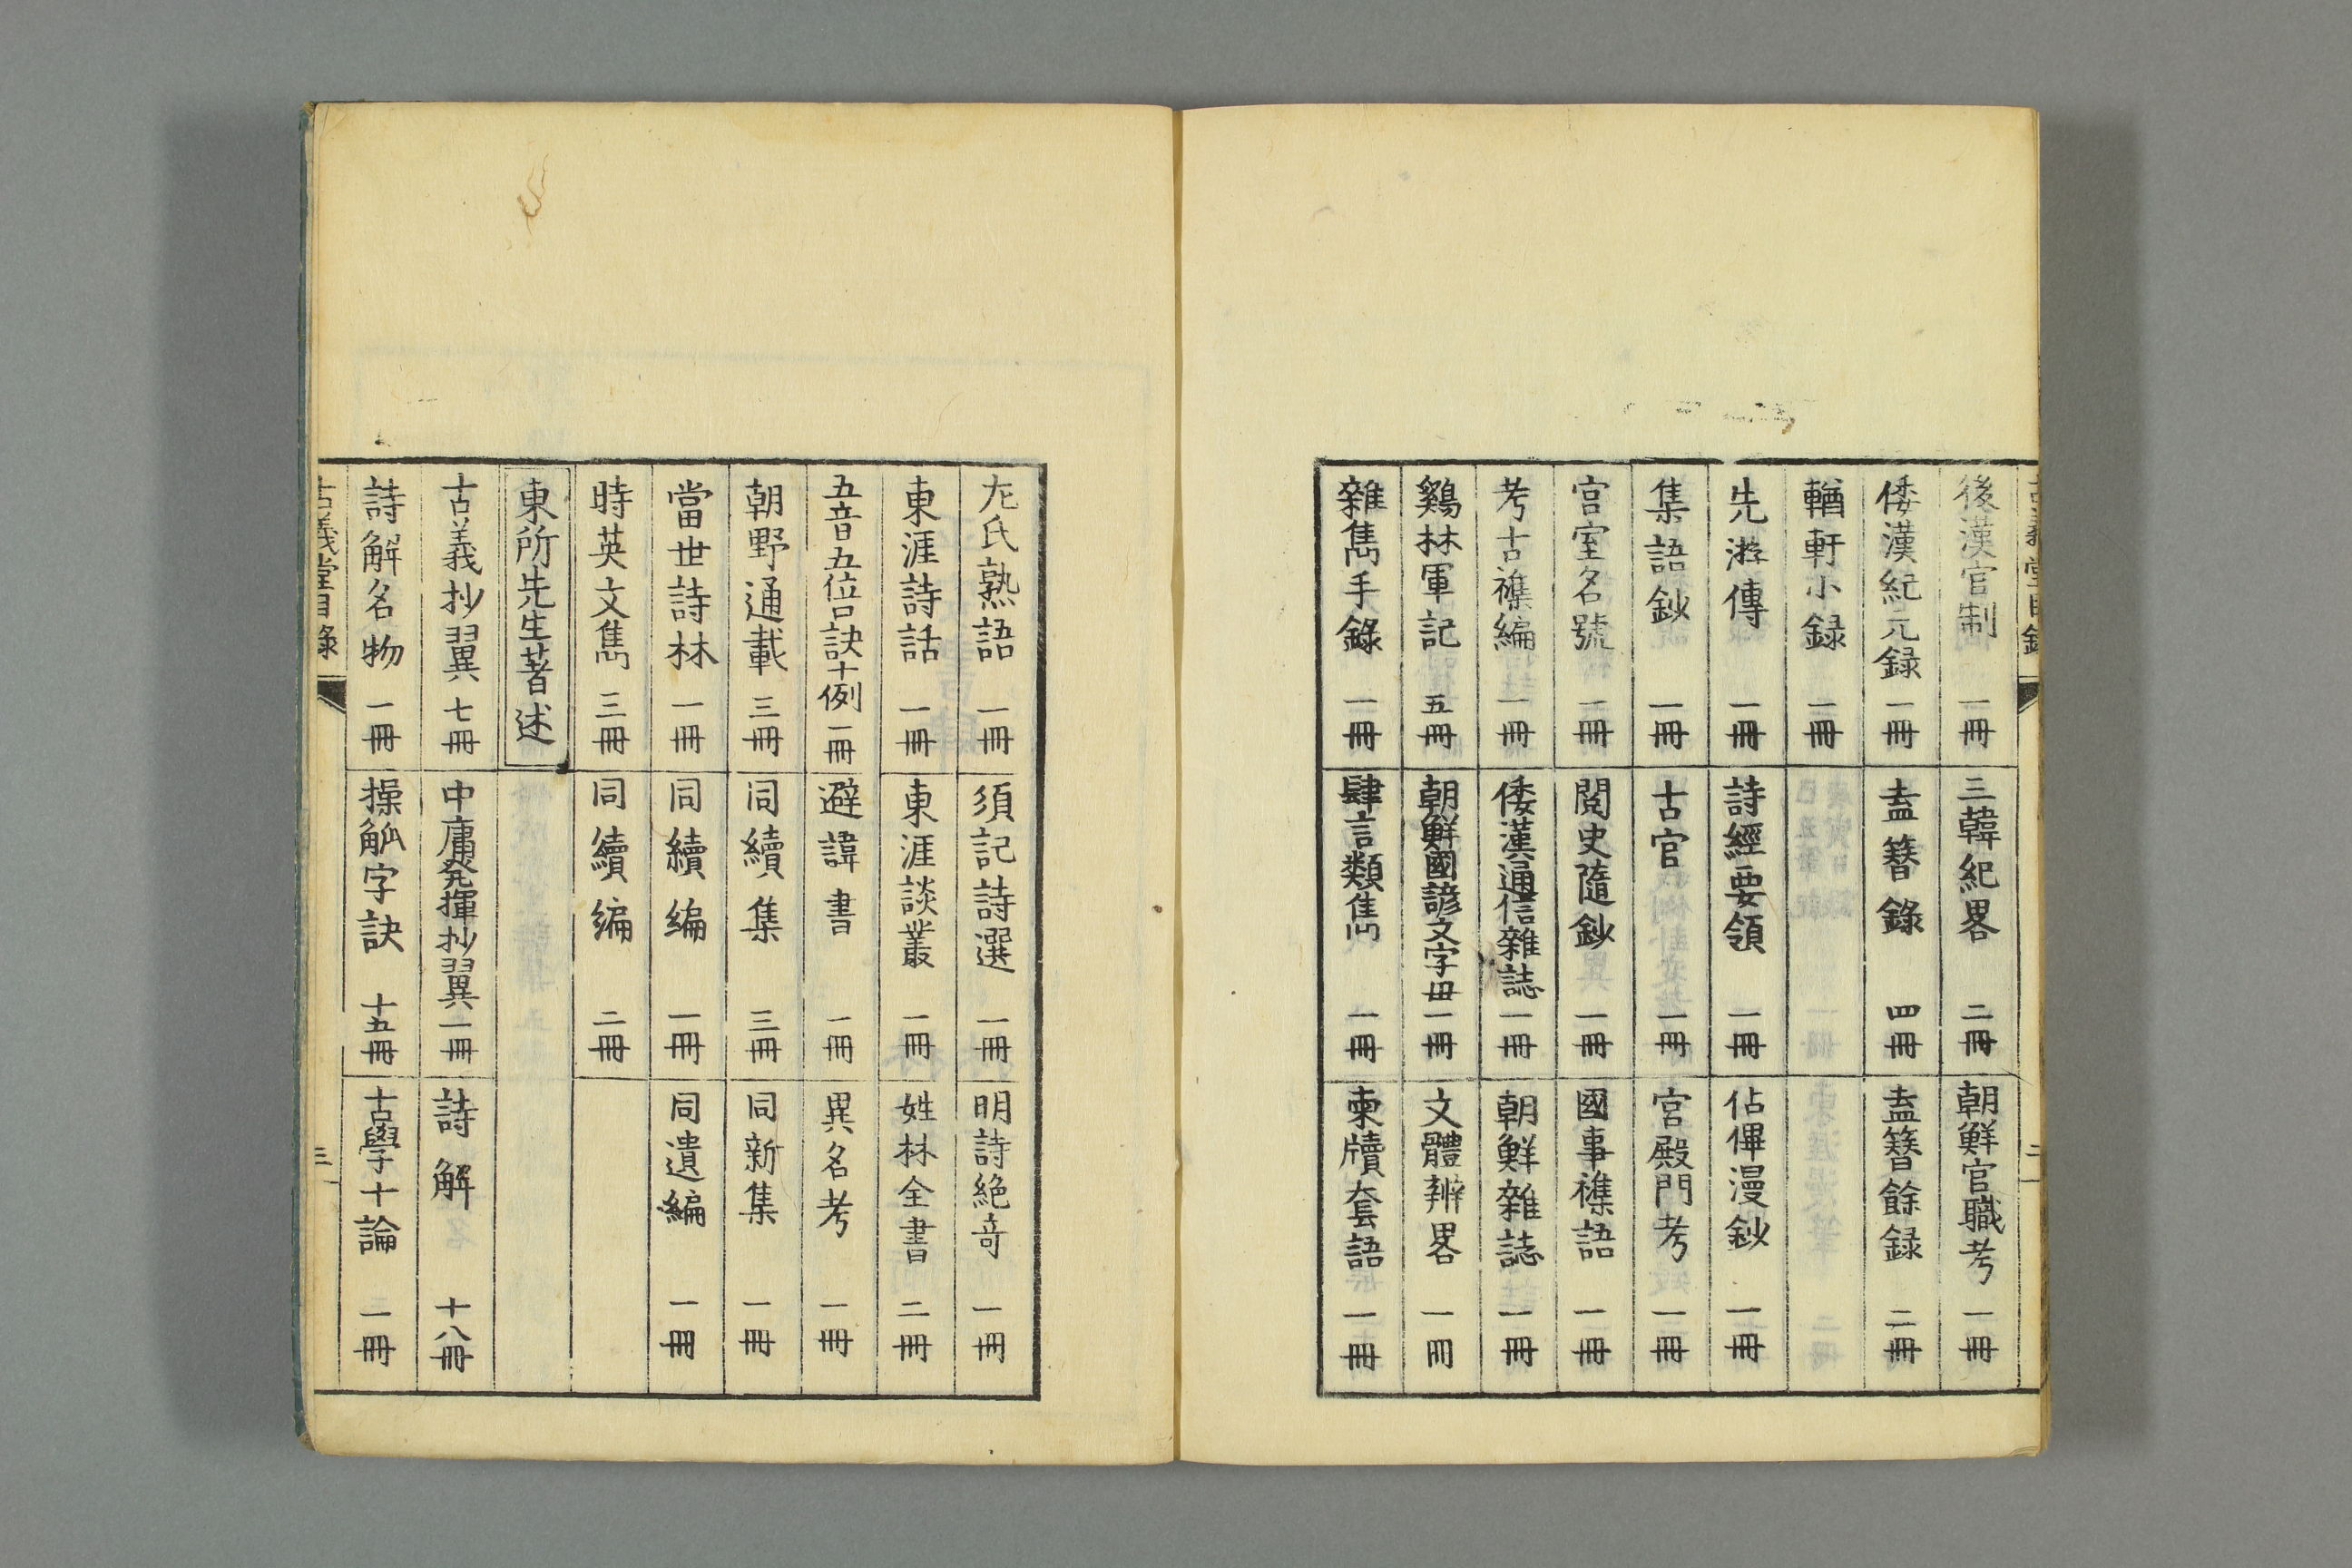 後漢官制 一冊 三韓紀畧 二冊 朝鮮官職考 一冊
倭漢紀元録 一冊 盍簪錄 四冊 盍簪餘録 二冊
輶軒小録 一冊
先游傳 一冊 詩經要領 一冊 佔俾漫鈔 一冊
集語鈔 一冊 古官 一冊 宮殿門考 一冊
宮室名號 一冊 閲史隨鈔 一冊 國事襍語 一冊
考古襍編 一冊 倭漢通信雜誌 一冊 朝鮮雜誌 一冊
鷄林軍記 五冊 朝鮮國諺文字母 一冊 文體辨畧 一冊
雜雋手錄 一冊 肆言類雋 一冊 柬牘套語 一冊
左氏熟語 一冊 須記詩選 一冊 明詩絶奇 一冊
東涯詩話 一冊 東涯談叢 一冊 姓林全書 二冊
五音五位口訣十例 一冊 避諱書 一冊 異名考 一冊
朝野通載 三冊 同續集 三冊 同新集 一冊
當世詩林 一冊 同續編 一冊 同遺編 一冊
時英文雋 三冊 同續編 二冊
東所先生著述
古義抄翼 七冊 中庸発揮抄翼 一冊 詩解 十八冊
詩解名物 一冊 操觚字訣 十五冊 古學十論 一冊
古義堂目錄 三